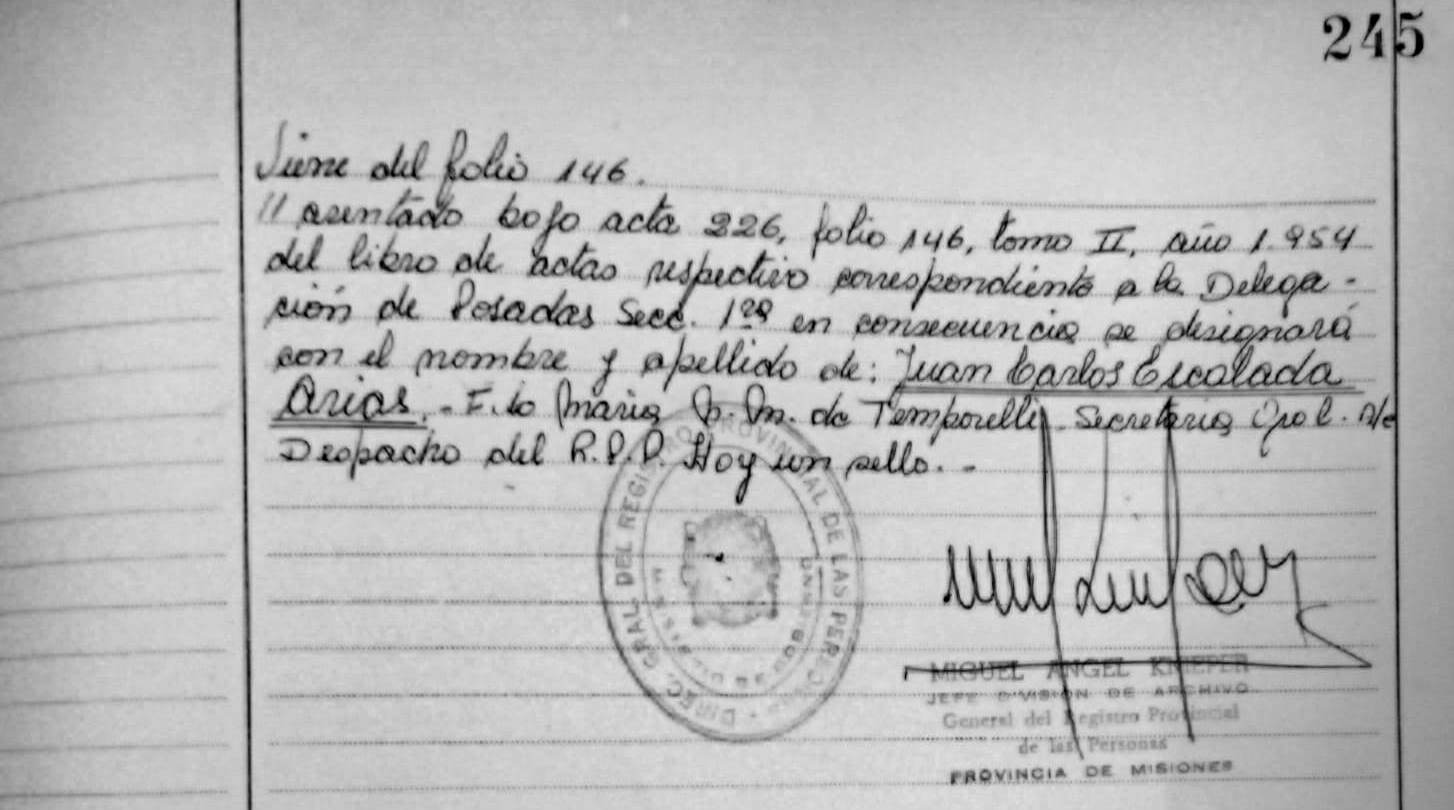 245
Viene del folio 146.
// asentado bajo acta 226, folio 146, tomo II, año 1.954
del libro de actas respectivo correspondiente a la Delega-
ción de Posadas Secc. 1ra en consecuencia se designará
con el nombre y apellido de: Juan Carlos Escalada
Arias.- F.do María de Temporelli Secretaria Gral. A/c
Despacho del R.P.P. Hay un sello.-
DIREC. GRAL. DEL REGISTRO PROVINCIAL DE LAS PERSONAS
MIGUEL ANGEL KNIEPER
JEFE DIVISIÓN DE ARCHIVO
General del Registro Provincial
de las Personas
PROVINCIA DE MISIONES